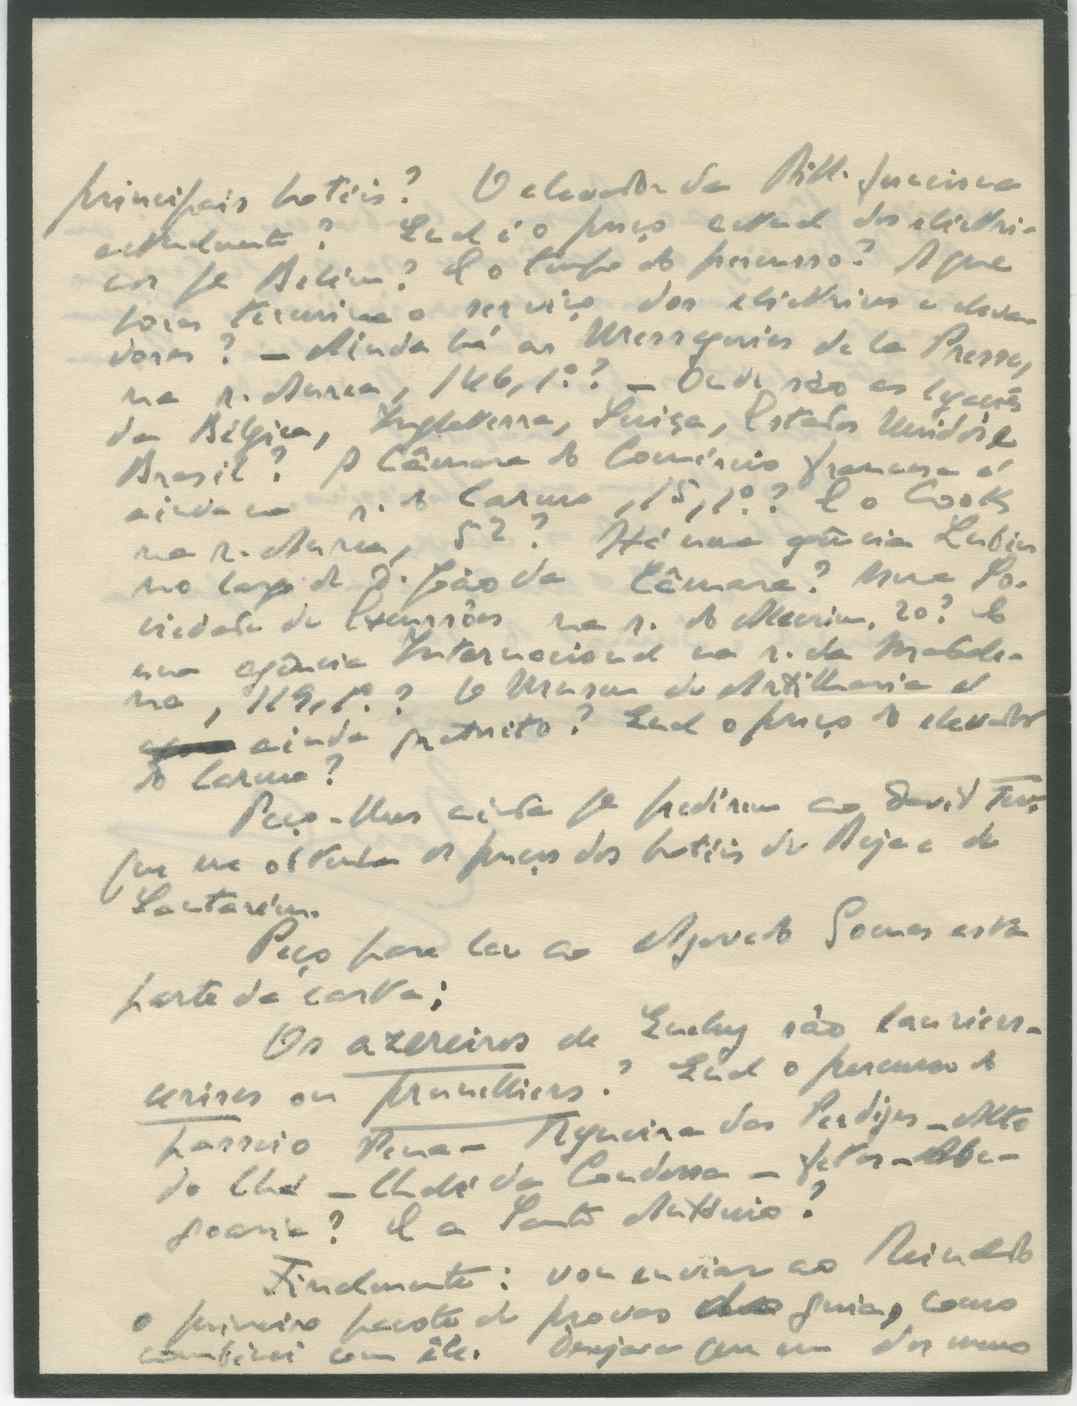 principais hotéis? O elevador da Bibl. funciona
actualmente? Qual é o preço actual dos eléctri-
cos pª Belém? E o tempo do percurso? A que
horas termina o serviço dos eléctricos e eleva-
dores? — Ainda há as Messageries de la Presse,
na r. Aurea, 146, 1º? — Onde são as legações
da Bélgica, Inglaterra, Suiça, Estados Unidos e
Brasil? A Câmara do Comércio francesa é
ainda na r. do Carmo, 15, 1º? E o Cook
na r. Aurea, 52? Há uma agência Lubin
no largo de S. João da Câmara? Uma So-
ciedade de Excursões na r. do Alecrim, 20? E
uma agência Internacional na r. da Madale-
na, 119, 1º? O Museu de Artilharia é
ainda gratuito? Qual o preço do elevador
do Carmo?
Peço-lhes ainda pª pedirem ao David
que me obtenha os preços dos hotéis de Beja e de
Santarém.
Peço para ler ao Azevedo Gomes esta
parte da carta:
Os azereiros de Queluz são lauriers-
cerises ou prunelliers? Qual o percurso do
passeio Pena — Regueira das Perdizes — Alto
do Chá — Chalé da Condessa — Fetos — Abe-
goaria? E a Santo António?
Finalmente: vou enviar ao Reinaldo
o primeiro pacote de provas guia, como
combinei com êle. Desejava que um dos meus